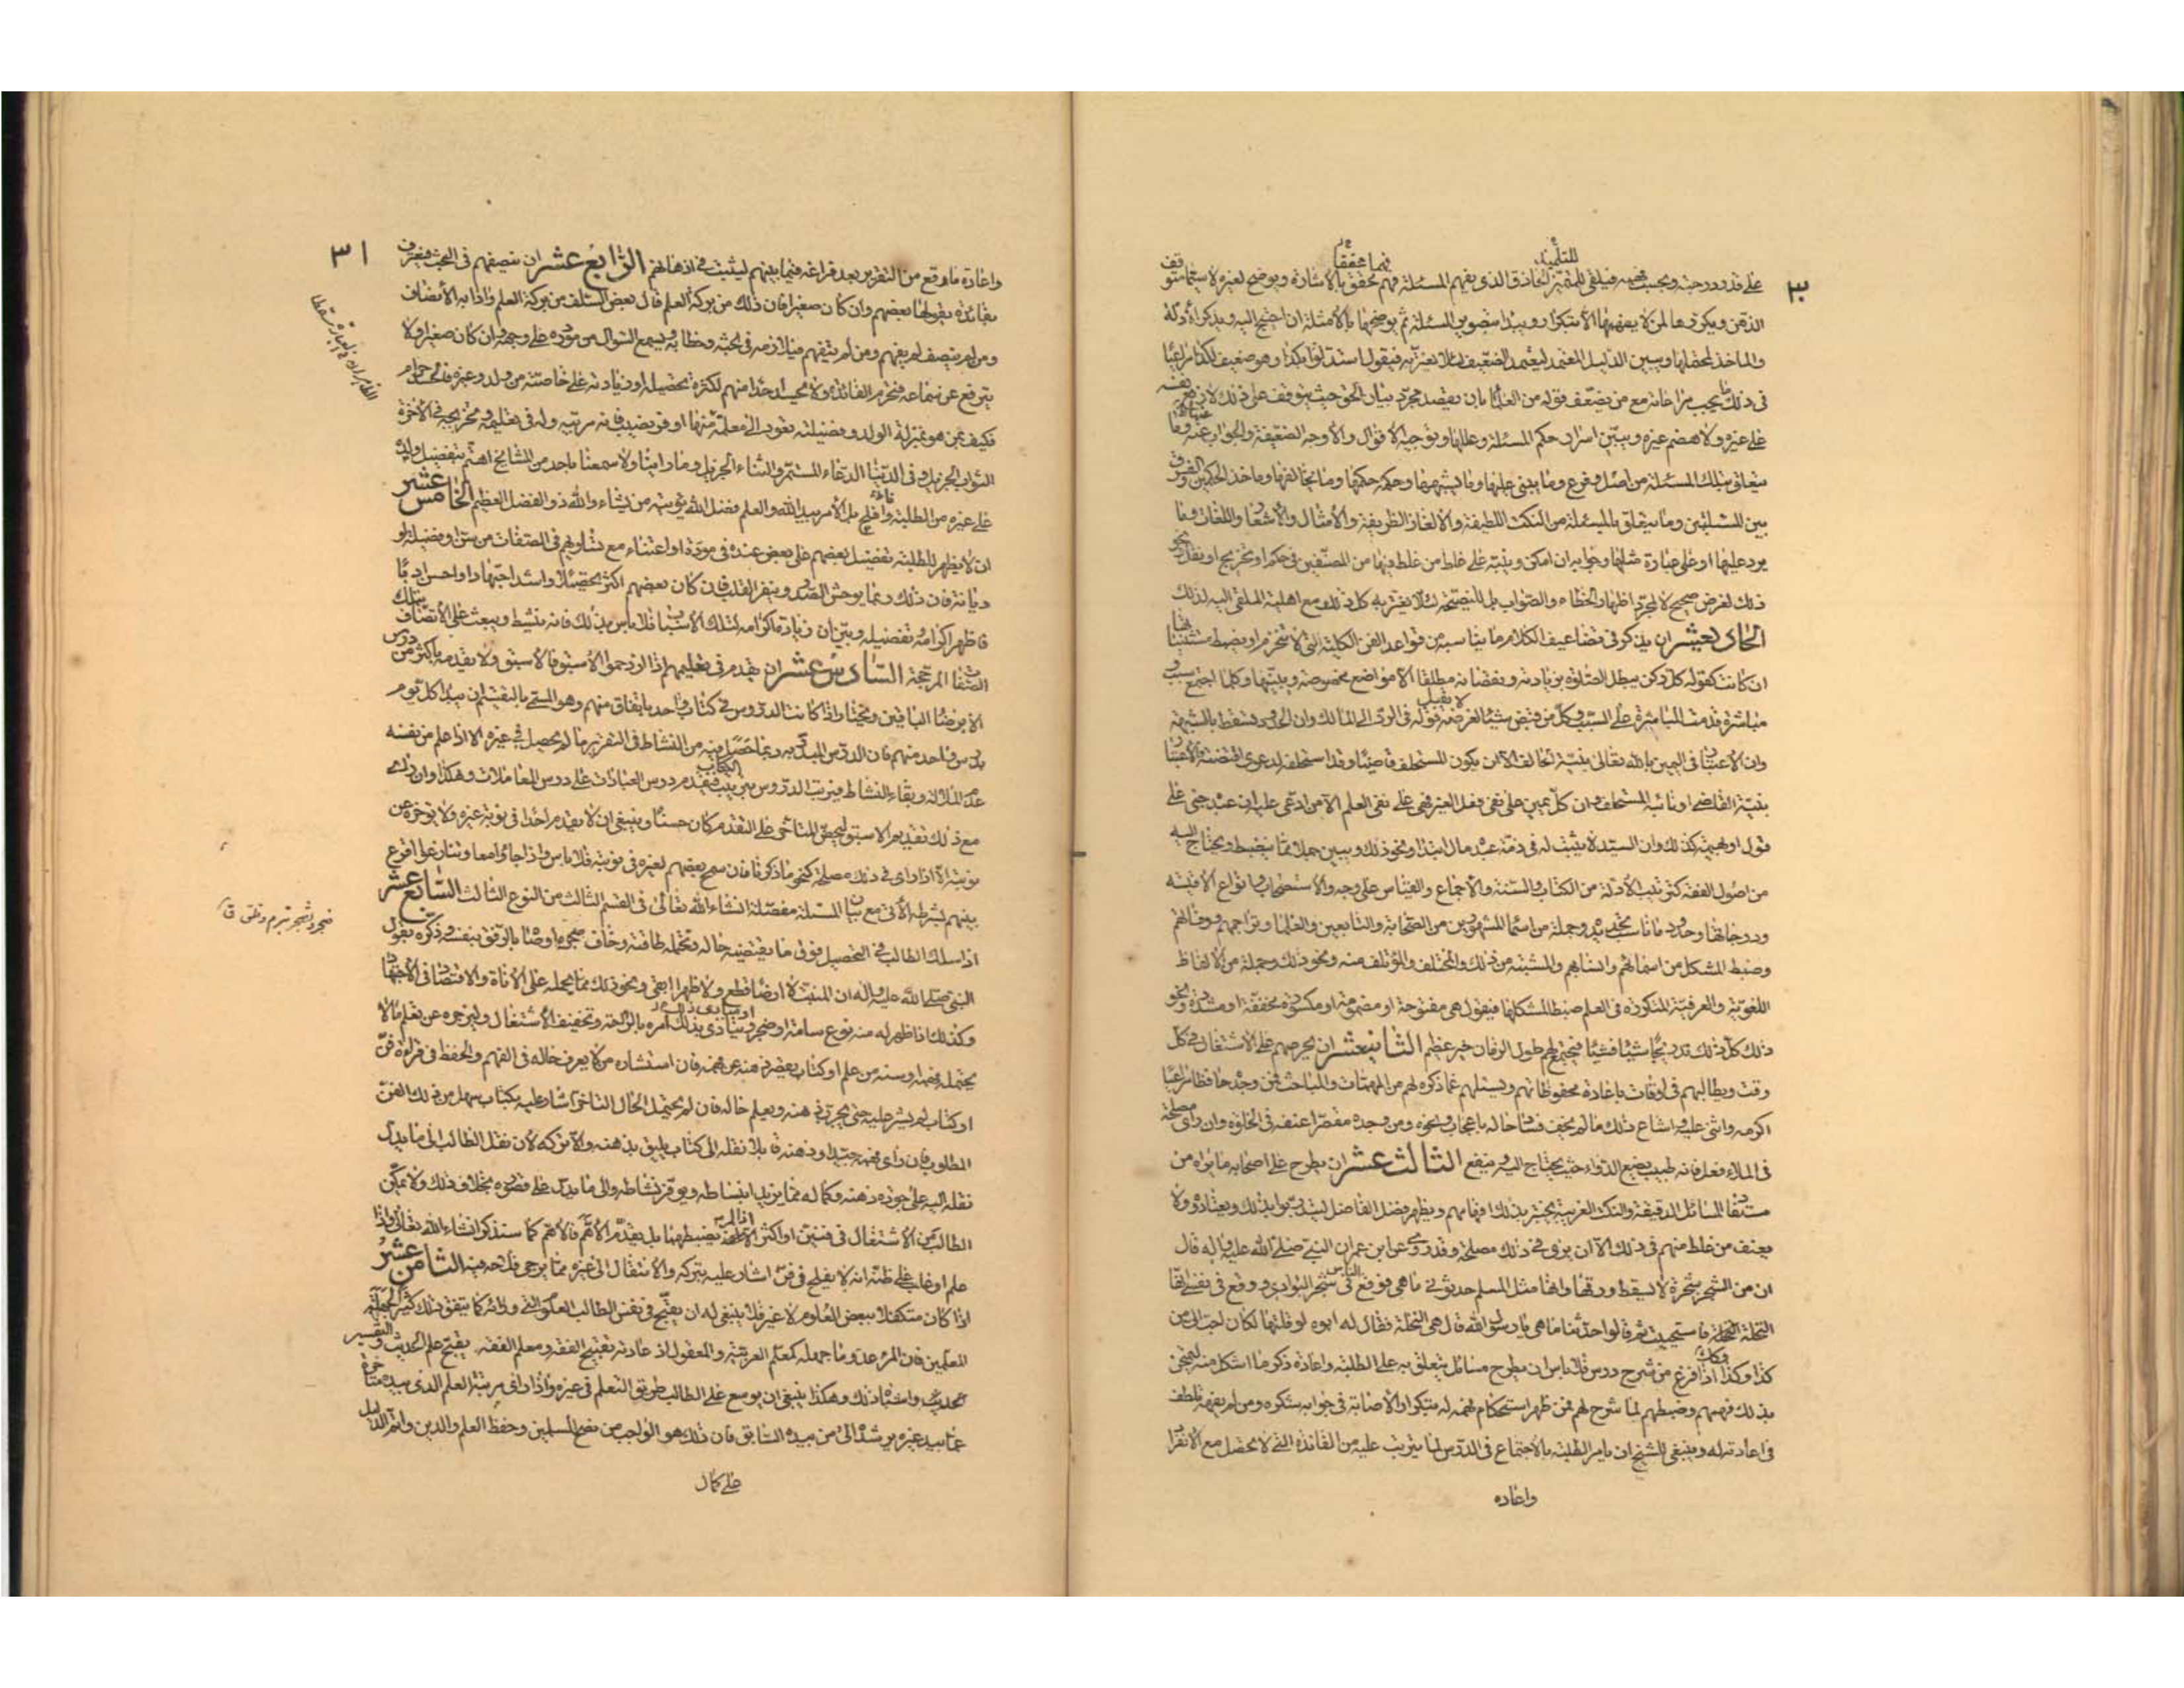 ٣٠
للتلميذ
فهما محققا
على قدر درجته وبحسب فهمه فيلقى للمتميز الحاذق الذي يفهم المسئلة فهم محقق بالاشارة ويوضح لغيره لا سيما متوقف
الذهن ويكررها لمن لا يفهمها الا بتكرار ويبدا بتصوير المسئلة ثم يوضحها بالامثلة ان احتيج اليه ويذكر الأدلة
والماخذ لمحتملها ويبين الدليل المعتمد ليعتمد الضعيف لئلا يغتر به فيقول استدلوا بكذا وهو ضعيف لكذا مراعيا
في ذلك ما يجب مراعاته مع من يضعف قوله من العلماء بان يقصد مجرد بيان الحق حيث يتوقف على ذلك لا رفع نفسه
على غيره ولا هضم غيره ويبين اسرار حكم المسئلة وعللها وتوجيه الاقوال والأوجه الضعيفة والجواب عنها وما
يتعلق بتلك المسئلة من اصل وفرع وما يبنى عليها وما يشبهها وحكمه حكمها وما يخالفها وماخذ الحكمين والفرق
بين المسئلتين وما يتعلق بالمسئلة من النكت اللطيفة والالغاز الظريفة والأمثال والأشعار واللغات وما
يرد عليها او على عبارة مثلها وجوابه ان امكن وينبه على غلط من غلط فيها من المصنفين في حكم او تخريج او نقل ونحو
ذلك لغرض صحيح لا لمجرد اظهار الخطاء والصواب بل للنصيحة لئلا يغتر به كل ذلك مع اهلية الملقى اليه لذلك
الحادي عشر ان يذكر في تضاعيف الكلام ما يناسبه من قواعد الفن الكلية التي لا تنخرم او يضبط مستثنياتها
ان كانت كقوله كل ركن يبطل الصلوة بزيادته ونقصانه مطلقا الا مواضع مخصوصة ويبينها وكلما اجتمع سبب و
مباشرة قدمت المباشرة على السبب وكل من قبض شيئا لغرضه لا يقبل قوله في الرد الى المالك وان الحدود تسقط بالشبهة
وان الاعتبار في اليمين بالله تعالى بنية الحالف الا ان يكون المستحلف قاضيا وقد استحلفه لدعوى اقتضته فالاعتبار
بنية القاضي او نائبه المستحلف وان كل يمين على نفي فعل الغير فهي على نفي العلم الا من ادعى عليه ان عبده جنى على
قول او بهيمته كذلك وان السيد لا يثبت له في ذمة عبده مال ابتداء ونحو ذلك ويبين جملا مما ينضبط ويحتاج اليه
من اصول الفقه كترتيب الأدلة من الكتاب والسنة والاجماع والقياس على وجه والاستصحاب وانواع الاقيسة
ودرجاتها وحدود ما ناسب تحديده وجملة من اسماء المشهورين من الصحابة والتابعين والعلماء وتراجمهم ووفياتهم
وضبط المشكل من اسمائهم وانسابهم والمشتبه من ذلك والمختلف والمؤتلف منه ونحو ذلك وجملة من الالفاظ
اللغوية والعرفية المتكررة في العلم ضبطا لمشكلها فيقول هي مفتوحة او مضمومة او مكسورة مخففة او مشددة ونحو
ذلك كل ذلك تدريجا شيئا فشيئا فيجتمع لهم طول الزمان خير عظيم الثاني عشر ان يحرضهم على الاشتغال في كل
وقت ويطالبهم في اوقات باعادة محفوظاتهم ويسئلهم عما ذكره لهم من المهمات والمباحث فمن وجده حافظا مراعيا
اكرمه واثنى عليه واشاع ذلك ما لم يخف فساد حاله باعجاب ونحوه ومن وجده مقصرا عنفه في الخلوة وان راى مصلحة
في الملاء فعل فانه طبيب يضع الدواء حيث يحتاج اليه وينفع الثالث عشر ان يطرح على اصحابه ما يراه من
مستفاد المسائل الدقيقة والنكت الغريبة يختبر بذلك افهامهم ويظهر فضل الفاضل ليتدربوا بذلك ويعتادوه ولا
يعنف من غلط منهم في ذلك الا ان يرى في ذلك مصلحة وقد روى عن ابن عمر ان النبي صلى الله عليه واله قال
ان من الشجر شجرة لا يسقط ورقها وانها مثل المسلم حدثوني ما هي فوقع الناس في شجر البوادي ووقع في نفسي انها
النخلة فاستحييت ثم قالوا حدثنا ما هي يا رسول الله قال هي النخلة فقال له ابوه لو قلتها لكان احب الى من
كذا وكذا وكذلك اذا فرغ من شرح درس فلا باس ان يطرح مسائل يتعلق به على الطلبة واعادة ذكر ما اشكل منه ليمتحن
بذلك فهمهم وضبطهم لما شرح لهم فمن ظهر استحكام فهمه له بتكرار الاصابة في جوابه شكره ومن لم يفهمه تلطف
في اعادته له وينبغي للشيخ ان يامر الطلبة بالاجتماع في الدرس لما يترتب عليه من الفائدة التي لا تحصل مع الانفراد
واعاده
٣١
واعادة ما وقع من التقرير بعد فراغه فيما بينهم ليثبت في اذهانهم الرابع عشر ان ينصفهم في البحث فيعترف
بفائدة يقولها بعضهم وان كان صغيرا فان ذلك من بركة العلم قال بعض السلف من بركة العلم وادابه الأنصاف
ومن لم ينصف لم يفهم ومن لم يتفهم فيلازمه في بحثه وخطابه ويسمع السؤال من مورده على وجهه وان كان صغيرا ولا
يترفع عن سماعه فيحرم الفائدة ولا يحسد احدا منهم لكثرة تحصيله او زيادته على خاصته من ولد وغيره فالحسد حرام
فكيف بمن هو بمنزلة الولد وفضيلته تعود الى معلمه منها اوفر نصيب فانه مربيه وله في تعليمه وتخريجه في الآخرة
الثواب الجزيل وفي الدنيا الدعاء المستمر والثناء الجزيل وما راينا ولا سمعنا باحد من المشايخ اهتم بتفضيل ولده
على غيره من الطلبة وافلح بل الأمر بيد الله والعلم فضل الله يؤتيه من يشاء والله ذو الفضل العظيم الخامس عشر
ان لا يظهر للطلبة تفضيل بعضهم على بعض عنده في مودة او اعتناء مع تساويهم في الصفات من سن او فضيلة او
ديانة فان ذلك ربما يوحش الصدر وينفر القلب فان كان بعضهم اكثر تحصيلا واشد اجتهادا واحسن ادبا
فاظهر اكرامه وتفضيله وبين ان زيادة اكرامه لتلك الأسباب فلا باس بذلك فانه ينشط ويبعث على الاتصاف بتلك
الصفات المرجحة السادس عشر ان يقدم في تعليمهم اذا ازدحموا الأسبق فالاسبق ولا يقدمه باكثر من درس
الا برضا الباقين ويختار اذا كانت الدروس في كتاب واحد باتفاق منهم وهو المسمى بالتقسيم ان يبدا كل يوم
بدرس واحد منهم فان الدرس المبدوء به ربما حصل فيه من النشاط في التقرير ما لم يحصل في غيره الا اذا علم من نفسه
عدم الملالة وبقاء النشاط فيرتب الدروس بترتيب الكتاب فيقدم درس العبادات على درس المعاملات وهكذا وان راى
مع ذلك تقديم الاسبق ليحض المتاخر على التقدم كان حسنا وينبغي ان لا يقدم احدا في نوبة غيره ولا يؤخره عن
نوبته الا اذا راى في ذلك مصلحة كنحو ما ذكرنا فان سمح بعضهم لغيره في نوبته فلا باس واذا جاؤا معا وتنازعوا اقرع
بينهم بشرطه الآتي مع بيان المسئلة مفصلة انشاء الله تعالى في القسم الثالث من النوع الثالث السابع عشر
اذا سلك الطالب في التحصيل فوق ما يقتضيه حاله وتحمله طاقته وخاف ضجره اوصاه بالرفق بنفسه وذكره بقول
النبي صلى الله عليه واله ان المنبت لا ارضا قطع ولا ظهرا ابقى ونحو ذلك مما يحمله على الاناة والاقتصاد في الاجتهاد
وكذلك اذا ظهر له منه نوع سامة او ضجر او مبادي ذلك امره بالراحة وتخفيف الأشتغال وليزجره عن تعلم ما لا
يحتمله فهمه او سنه من علم او كتاب يقصر ذهنه عن فهمه فان استشاره من لا يعرف حاله في الفهم والحفظ في قراءة فن
او كتاب لم يشر عليه حتى يجرب ذهنه ويعلم حاله فان لم يحتمل الحال التاخر اشار عليه بكتاب سهل من ذلك الفن
المطلوب فان راى فهمه جيدا وذهنه قابلا نقله الى كتاب يليق بذهنه والا تركه لأن نقل الطالب الى ما يدل
نقله اليه على جوده ذهنه وكماله مما يزيد انبساطه ويوفر نشاطه والى ما يدل على قصوره بخلاف ذلك ولا يمكن
الطالب من الأشتغال في فنين او اكثر اذا لم يضبطهما بل يقدم الأهم فالاهم كما سنذكر انشاء الله تعالى واذا
علم او غلب على ظنه انه لا يفلح في فن اشار عليه بتركه والأنتقال الى غيره مما يرجى فلاحه فيه الثامن عشر
اذا كان متكفلا ببعض العلوم لا غير فلا ينبغي له ان يقبح في نفس الطالب العلوم التي ورائه كما يتفق ذلك كثيرا لجهلة
المعلمين فان المرء عدو ما جهله كمعلم العربية والمعقول اذ عادته تقبيح الفقه ومعلم الفقه يقبح علم الحديث والتفسير
الحديث واشباه ذلك وهكذا ينبغي ان يوسع على الطالب طريق التعلم في غيره واذا راى مرتبة العلم الذي بيده متاخرة
عما بيد غيره يرشده الى من بيده السابق فان ذلك هو الواجب من نصح المسلمين وحفظ العلم والدين واتم الدليل
على كمال